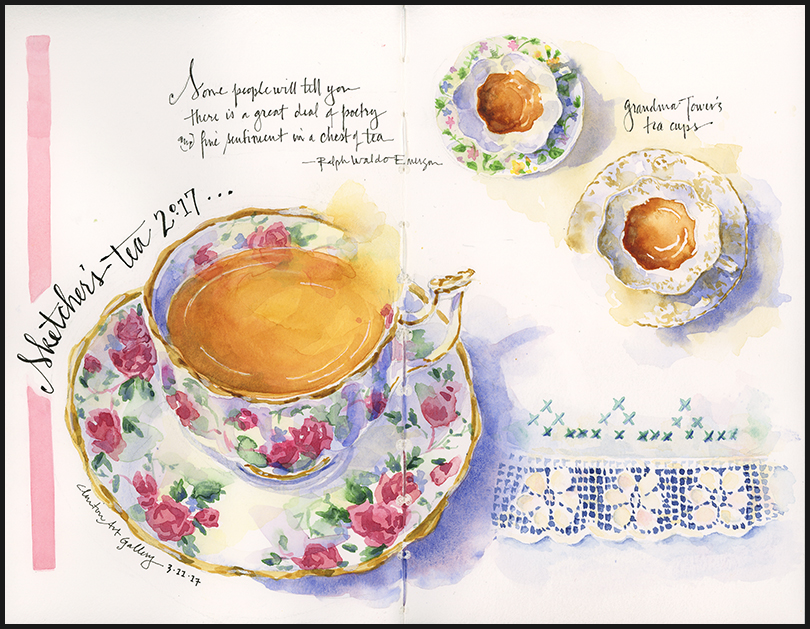 Some people will tell you
there is a great deal of poetry
and fine sentiment in a chest of tea
—Ralph Waldo Emerson
Grandma Tower's
tea cups
Sketcher's-tea 2017...
Clinton Art Gallery
3-22-17